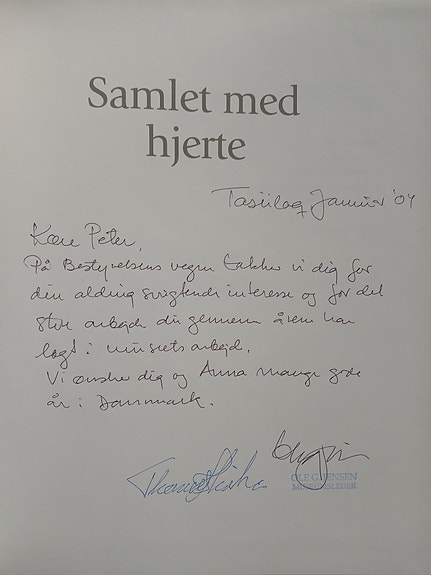 Samlet med
hjerte
Tasiilaq Januar '04
Kære Peter,
På Bestyrelsens vegne takker vi dig for
din aldrig svigtende interesse og for det
store arbejde du gennem årene har
lagt i museets arbejde.
Vi ønsker dig og Anna mange gode
år i Danmark.
OLE G. JENSEN
MUSEUMSLEDER